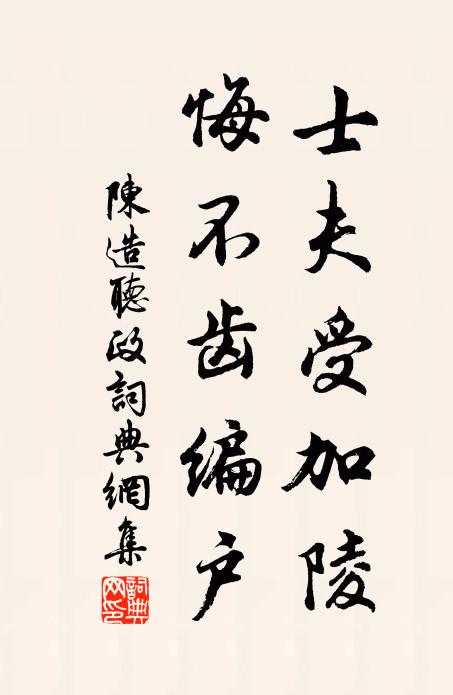 士夫受加陵
悔不齿编户
陳造聽政詞典網集
詞典網印